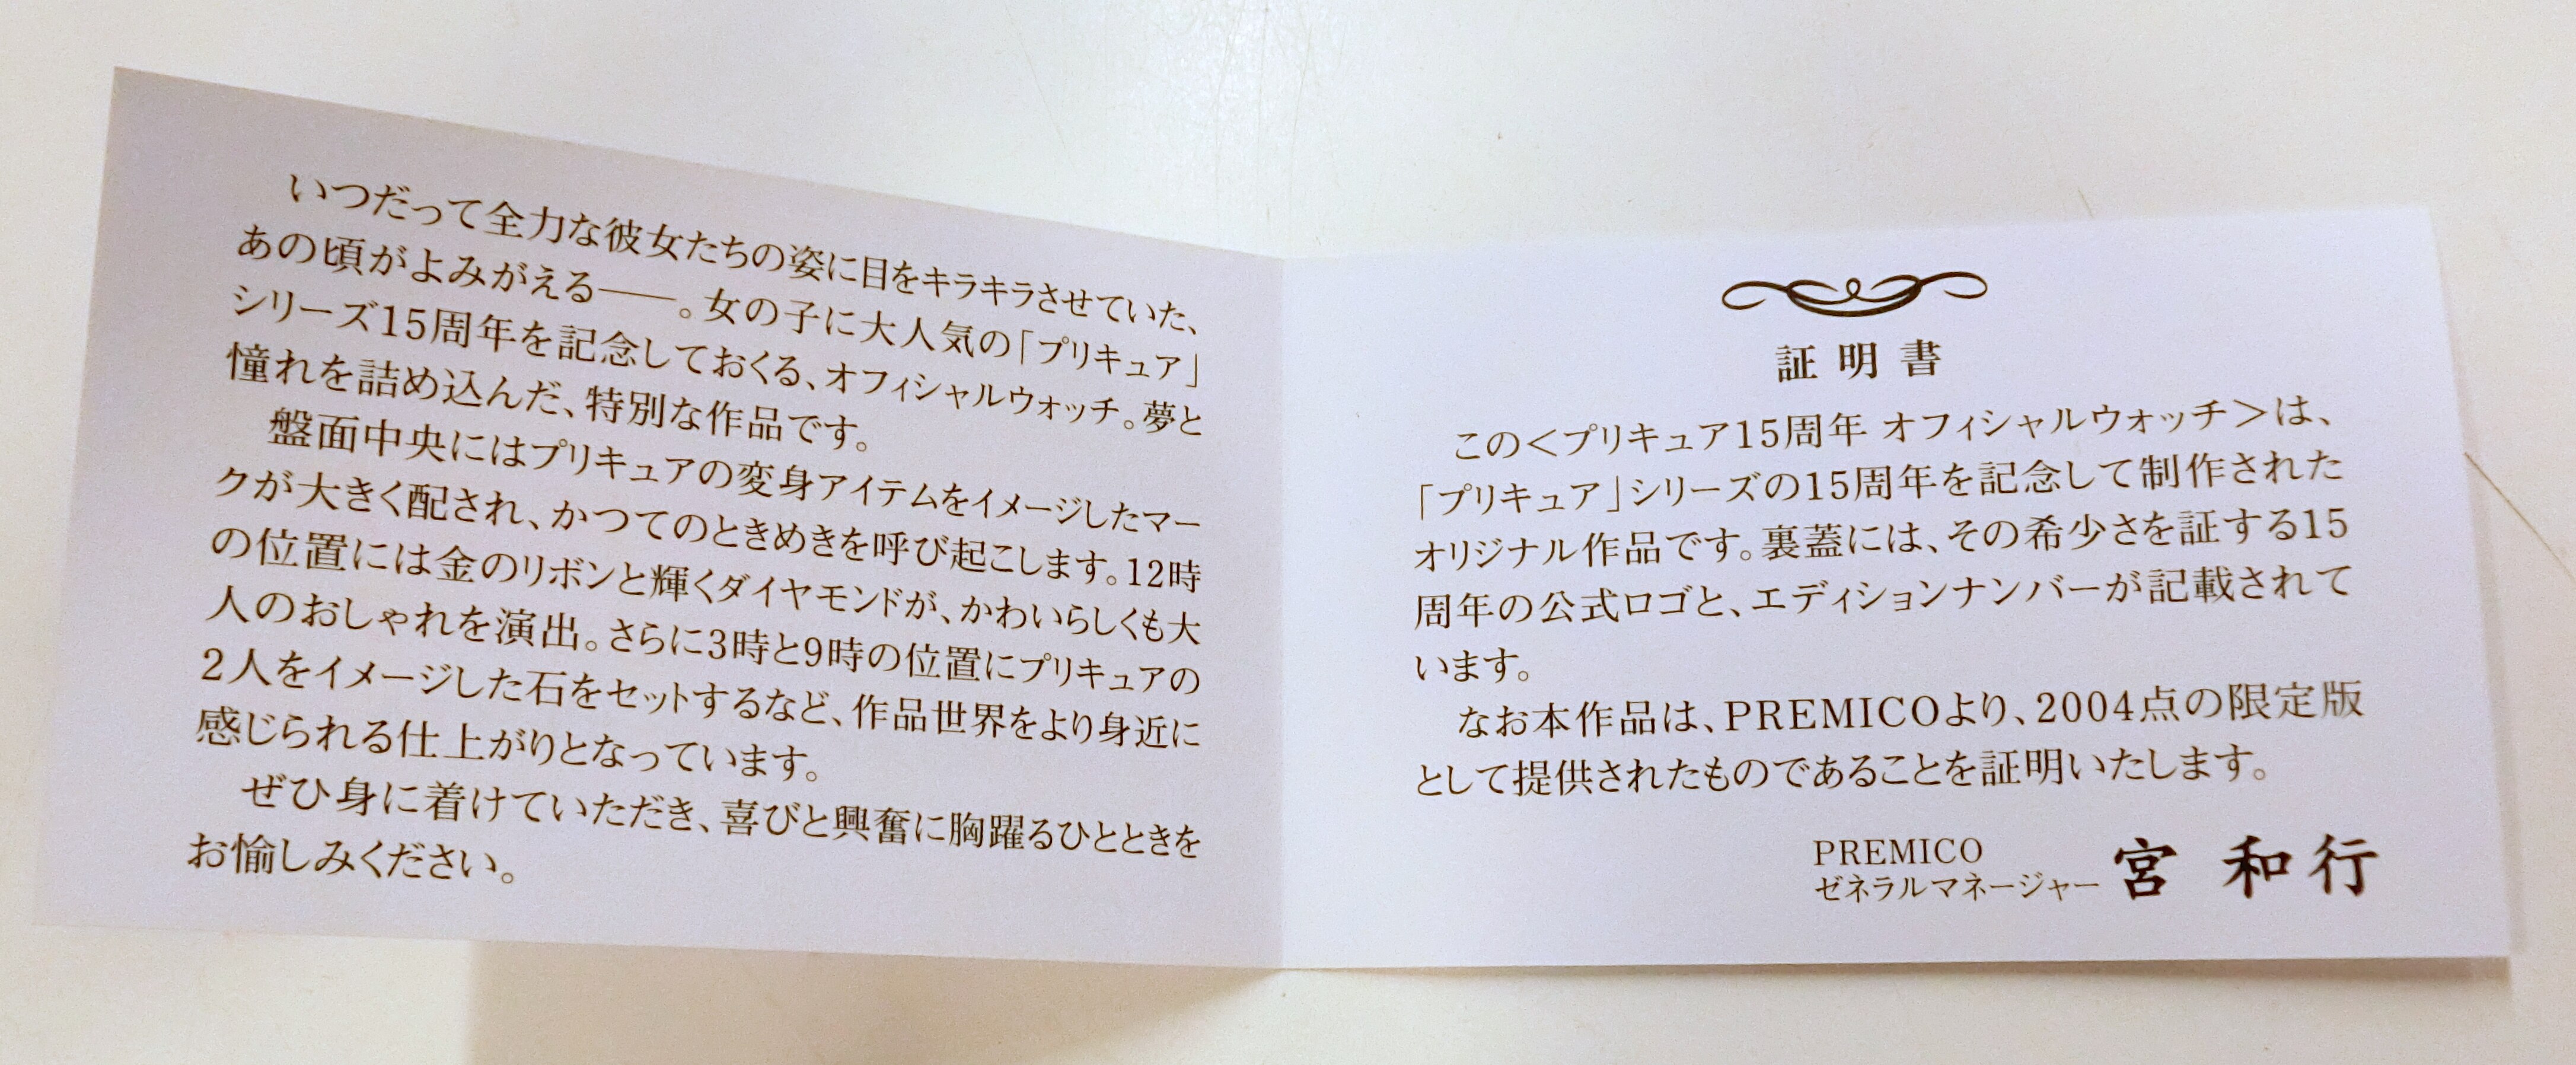 いつだって全力な彼女たちの姿に目をキラキラさせていた、
あの頃がよみがえる——。女の子に大人気の「プリキュア」
シリーズ15周年を記念しておくる、オフィシャルウォッチ。夢と
憧れを詰め込んだ、特別な作品です。
盤面中央にはプリキュアの変身アイテムをイメージしたマー
クが大きく配され、かつてのときめきを呼び起こします。12時
の位置には金のリボンと輝くダイヤモンドが、かわいらしくも大
人のおしゃれを演出。さらに3時と9時の位置にプリキュアの
2人をイメージした石をセットするなど、作品世界をより身近に
感じられる仕上がりとなっています。
ぜひ身に着けていただき、喜びと興奮に胸躍るひとときを
お愉しみください。
証明書
この＜プリキュア15周年 オフィシャルウォッチ＞は、
「プリキュア」シリーズの15周年を記念して制作された
オリジナル作品です。裏蓋には、その希少さを証する15
周年の公式ロゴと、エディションナンバーが記載されて
います。
なお本作品は、PREMICOより、2004点の限定版
として提供されたものであることを証明いたします。
PREMICO
ゼネラルマネージャー 宮 和行